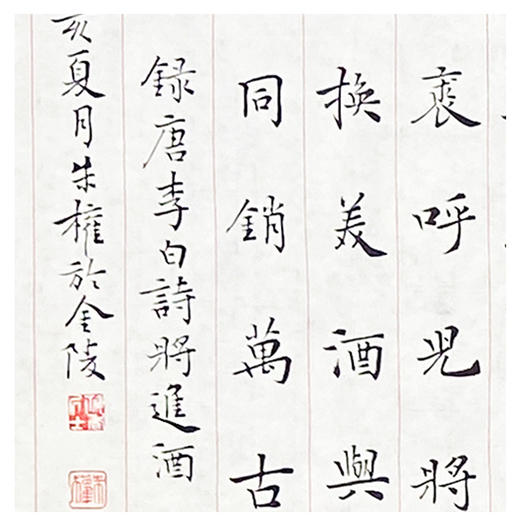 裘呼兒將
換美酒與
同銷萬古
録唐李白詩將進酒
亥夏月朱權於金陵